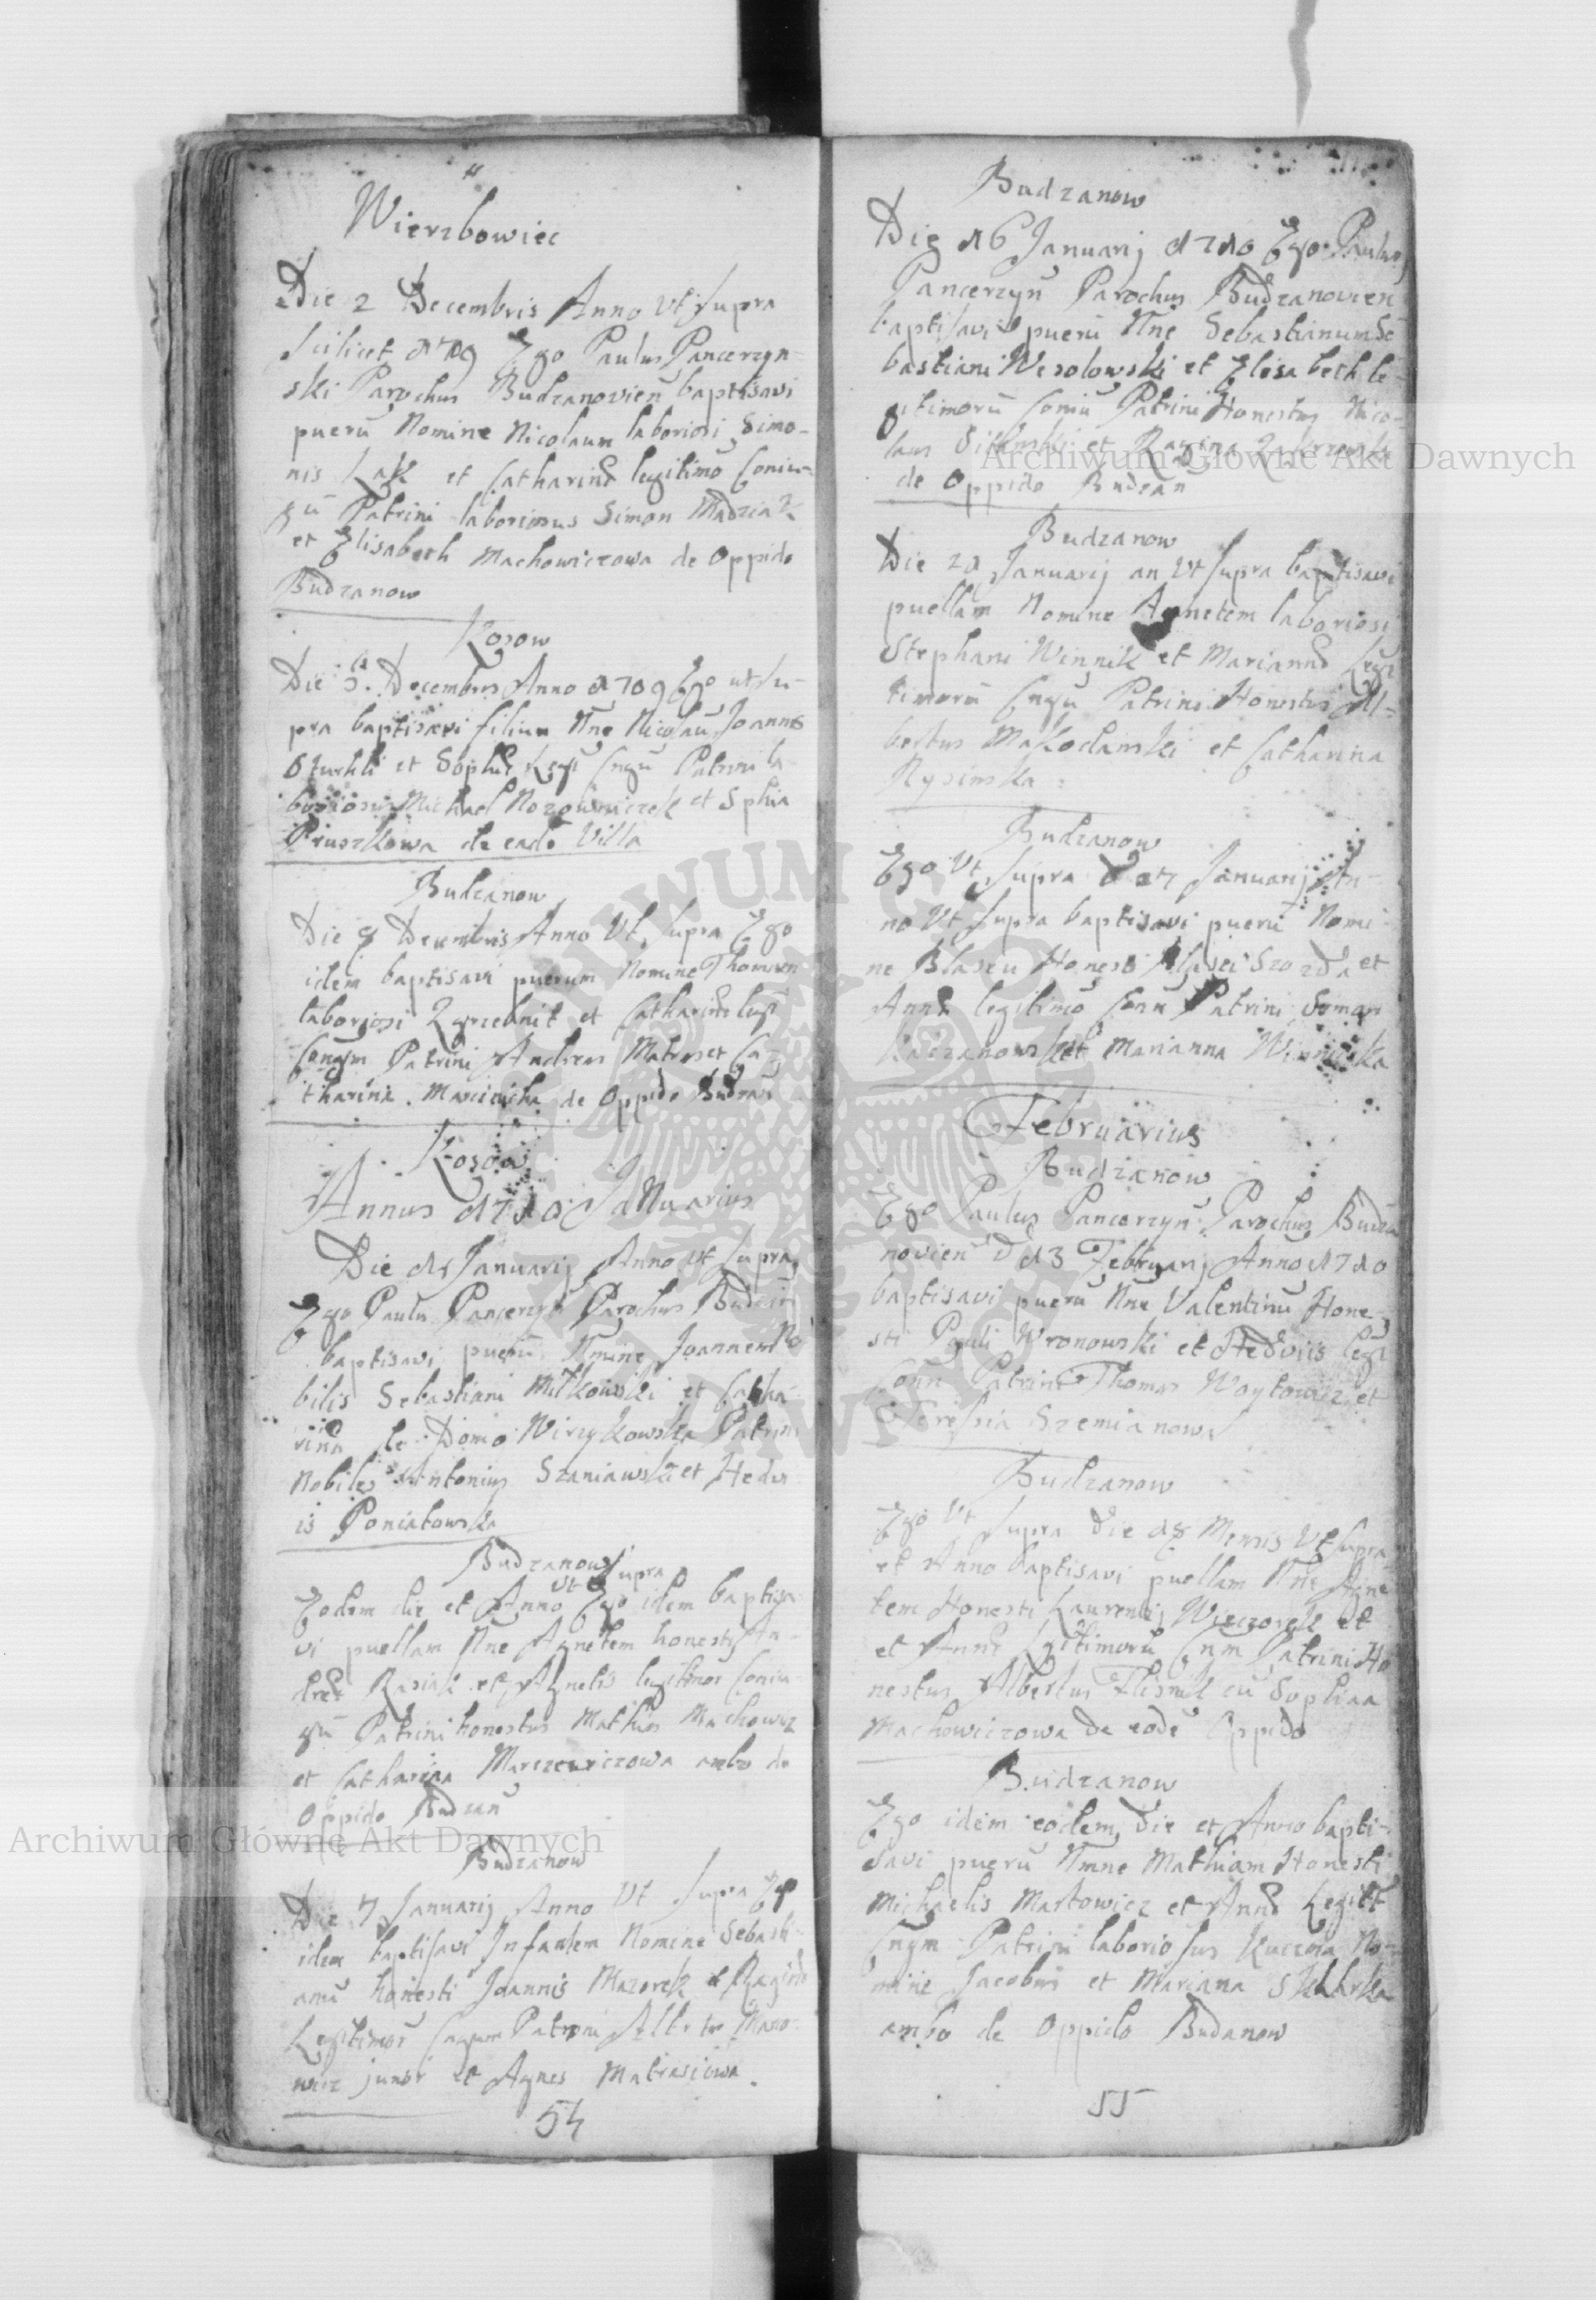 Wierzbowiec
Die 2 Decembris Anno Vt supra
scilicet 1709 Ego Paulus Pancerzyn-
ski Parochus Budzanovien baptisavi
puerū Nomine Nicolaum laboriosi Simo-
nis Łak et Catharinæ legitimo Coniu-
gū Patrini laboriosus Simon Madziak
et Elisabeth Machowiczowa de Oppido
Budzanow
Kosow
Die Decembris Anno 1709 Ego ut su-
pra baptisavi filium Nne Nicolaū Joannis
et Sophiæ Legi Cngū Patrini la-
boriosus Michael et Sphia
Pruszkowa de eade Villa
Budzanow
Die 8 Decembris Anno Vt supra Ego
idem baptisavi puerum Nomine Thomam
laboriosi et Catharinæ legi
Congm Patrini Andreas et Ca-
tharina de Oppido Budzan
Kosow
Annus 1710 JaNuarius
Die Januarij Anno Vt supra
Ego Paulus Pancerzyn Parochus Budzan
baptisavi puerū Nmine Joannem No
bilis Sebastiani Mitkowski et Catha-
rinæ de Domo Wirzykowska Patrini
Nobiles Antonius Szaniawski et Hedvi
is Poniatowska
Budzanow
Vt supra
Eodem die et Anno Ego idem baptisa-
vi puellam Nne Agnetem honesti An-
dreæ Rasiak et Agnetis legitimor Coniu-
gū Patrini honestus Mathias Machowicz
et Catharina Marczewiczowa ambo de
Oppido Budzan
Budzanow
Die 7 Januarij Anno Vt supra Ego
idem baptisavi Infantem Nomine Sebasti-
anū honesti Joannis Mazorek et Reginæ
Legitimor Cngum Patrini
junior et Agnes Matrasiowa.
54
Budzanow
Die 16 Januarij 1710 Ego Paulus
Pancerzyn Parochus Budzanovien
baptisavi puerū Nne Sebastianum Se
bastiani Wesolowski et Elisabeth le-
gitimorū Coniū Patrini Honestus Nico-
laus et Regina
de Oppido Budzan
Budzanow
Die 21 Januarij an Vt supra baptisavi
puellam Nomine Agnetem laboriosi
Stephani Winnik et Mariannæ Legi
timorū Cngū Patrini Honestus Al-
bertus et Catharina
Rysinska
Budzanow
Ego Vt supra D 27 Januarij An-
no Vt supra baptisavi puerū Nomi
ne Blasiu Honesti Blasei Szozda et
Annæ legitimo Coniu Patrini Simon
et Marianna
Februarius
Budzanow
Ego Paulus Pancerzyn Parochus Budza
novien D 13 Februarj Anno 1710
baptisavi puerū Nne Valentinū Hone-
sti Pauli Wronowski et Hedviis legi
Coniu Patrini Thomas Woytowicz et
Teressia Szemianowa
Budzanow
Ego Vt supra Die 18 Mensis Vt supra
et Anno baptisavi puellam Nne Agne
tem Honesti Laurentij Wieczorek et
et Annæ Lgitimorū Cnm Patrini Ho
nestus Albertus Flisnik cū Sophiaa
Machowiczowa de eode Oppido
Budzanow
Ego idem eodem Die et Anno bapti-
savi puerū Nmne Mathiam Honesti
Michaelis Martowicz et Annæ Legitt
Cngm Patrini laboriosus Kuczma No-
mine Jacobus et Mariana
ambo de Oppido Budanow
55
Archiwum Główne Akt Dawnych
Archiwum Główne Akt Dawnych